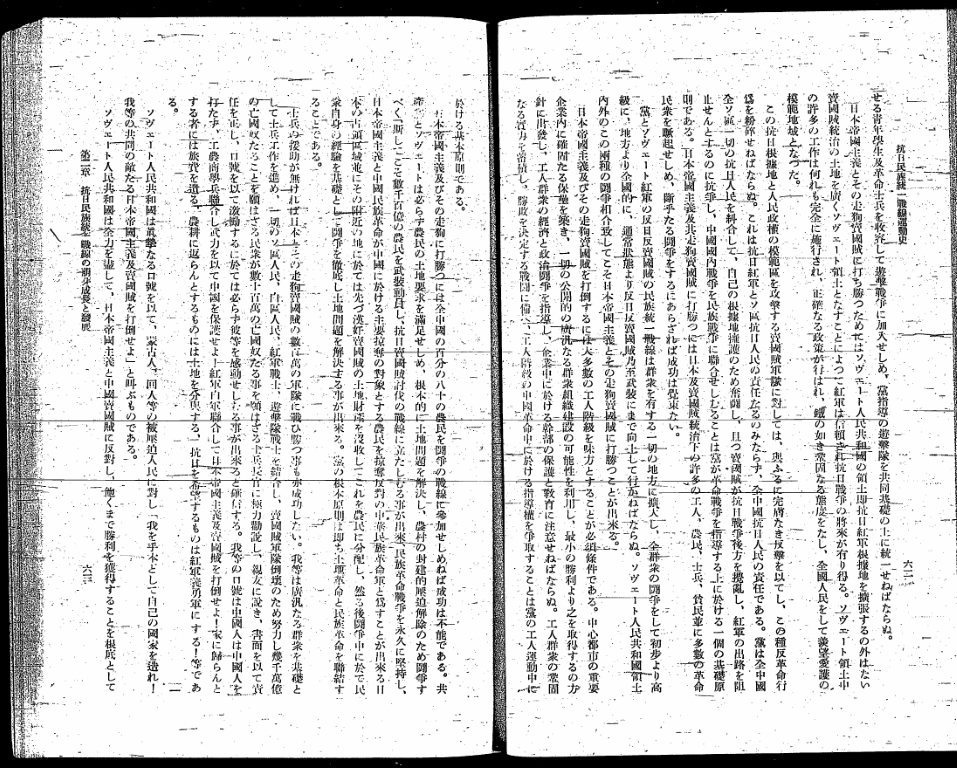 抗日民族統一戰線運動史
六二
せる青年學生及革命士兵を收容して遊擊戰爭に加入せしめ。黨指導の遊擊隊を共同基礎の上に統一せねばならぬ。
日本帝國主義とその走狗賣國賊に打ち勝つためにはソヴェート人民共和國の領土即抗日紅軍根據地を擴張するの外はない
賣國賊統治の土地を廣くソヴェート領土となすことによつて紅軍は信賴され抗日戰爭の將來が有り得る。ソヴェート領土中
の許多の工作は何れも完全に施行され、正確なる政策が行はれ、鐵の如き鞏固なる態度をなし、全國人民をして羨望愛護の
模範地域となつた。
この抗日根據地と人民政權の模範區を攻擊する賣國賊軍隊に對しては、與ふるに完膚なき反擊を以てし、この種反革命行
爲を紛碎せねばならぬ。これは抗日紅軍とソ區抗日人民の責任たるのみならず、全中國抗日人民の責任である。黨は全中國
全ソ區一切の抗日人民を糾合して、自己の根據地擁護のため奮鬪し、且つ賣國賊が抗日戰爭後方を擾亂し、紅軍の出路を阻
止せんとするのに抗爭し、中國國內戰爭を民族戰爭に聯合せしむることは黨が革命戰爭を指導する上に於ける一個の基礎原
則である。日本帝國主義及其走狗賣國賊に打勝つには日本及賣國賊統治下の許多の工人、農民、士兵、貧民並に多數の革命
民衆を蹶起せしめ、斷乎たる鬪爭をするにあらざれば成功は覺束ない。
黨とソヴェート紅軍の反日反賣國賊の民族統一戰線は群衆を有する一切の地方に擴大し、全群衆の鬪爭をして初步より高
級に、地方より全國的に、通常狀態より反日反賣國賊乃至武裝にまで向上して行かねばならぬ。ソヴェート人民共和國領土
內外のこの兩種の鬪爭相合致してこそ日本帝國主義とその走狗賣國賊に打勝つことが出來る。
日本帝國主義及びその走狗賣國賊を打倒するには大多數の工人階級を味方とすることが必須條件である。中心都市の重要
企業內に確固たる保壘を築き、一切の公開的の廣汎なる群衆組織建設の可能性を利用し、最小の勝利より之を取得するの方
針に出發し、工人群衆の經濟と政治鬪爭を指導し、企業中に於ける幹部の保護と敎育に注意せねばならぬ。工人群衆の鞏固
なる實力を蓄積し、勝敗を決定する戰鬪に備へ、工人階級の中國革命中に於ける指導權を爭取することは黨の工人運動中に
於ける基本原則である。
日本帝國主義及びその走狗に打勝つには全中國の百分の八十の農民を鬪爭の戰線に參加せしめねば成功は不能である。共
產黨とソヴェートは必らず農民の土地要求を滿足せしめ、根本的に土地問題を解決し、農村の封建的壓迫解除のため鬪爭す
べく、斯してこそ數千百億の農民を武裝動員し、抗日賣國賊討伐の戰線に立たしむる事が出來、民族革命戰爭を永久に堅持し、
日本帝國主義と中國民族革命が中國に於ける主要掠奪の對象とする農民を掠奪反對の中華民族革命軍と爲すことが出來る日
本の占領區域並にその附近の地に於ては先づ漢奸賣國賊の土地財產を沒收してこれを農民に分配し、然る後鬪爭中に於て民
衆自身の經驗を基礎として鬪爭を徹底し土地問題を解決する事が出來る。黨の根本原則は即ち土地革命と民族革命を聯結す
ることである。
士兵の援助が無ければ日本とその走狗賣國賊の數百萬の軍隊に戰ひ勝つ事も亦成功しない。我等は廣汎なる群衆を基礎と
して士兵工作を進め、一切のソ區人民、白區人民、紅軍戰士、遊擊隊戰士を結合し、賣國賊軍隊倒壞のため努力し幾千萬億
の亡國奴たることを願はざる民衆が數十百萬の亡國奴たる事を願はざる士兵兵官に極力勸說し、親友に說き、書面を以て責
任を正し、口號を以て激勵するに於ては必らず彼等を感動せしむる事が出來ると確信する。我等の口號は中國人は中國人を
打たず、工農商學兵聯合し武力を以て中國を保護せよ！紅軍白軍聯合して日本帝國主義及賣國賊を打倒せよ！家に歸らんと
する者には旅費を遺る。農耕に返らんとするものには土地を分與する、抗日を希望するものは紅軍義勇軍にする！等であ
る。
ソヴェート人民共和國は眞摯なる口號を以て、蒙古人、回人等の被壓迫人民に對し「我を手本として自己の國家を造れ！
我等の共同の敵たる日本帝國主義及賣國賊を打倒せよ」と叫ぶものである。
ソヴェート人民共和國は全力を盡して、日本帝國主義と中國賣國賊に反對し、飽くまで勝利を獲得することを根底として
第二章　抗日民族統一戰線の萌芽成長と發展
六三